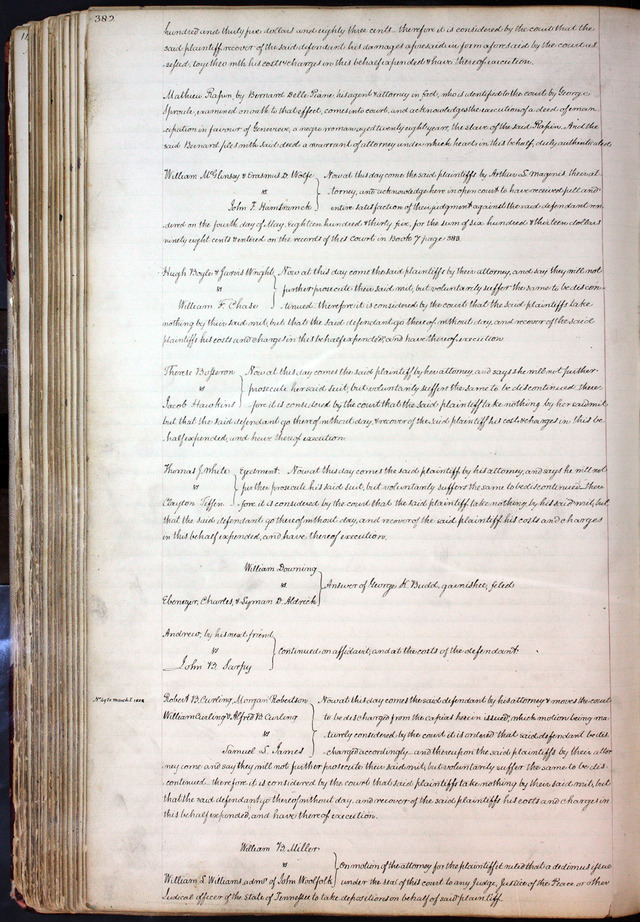 382
hundred and thirty five dollars and eighty three cents therefore it is considered by the court that the
said plaintiff recover of the said defendant his damages aforesaid in form aforesaid by the court as
sessed, together with his costs & charges in this behalf expended & have thereof execution.
Mathieu Rapin, by Bernard Delle Piane, his agent & attorney in fact, who is identified to the court by George
Sproule, examined on oath to that effect, comes into court, and acknowledges the execution of a deed of eman
cipation in favour of Genevieve, a negro woman, aged twenty eight years, the slave of the said Rapin. And the
said Bernard files with said deed a warrant of attorney under which he acts in this behalf, duly authenticated.
William McGlinsey & Erasmus D. Wolfe Now at this day come the said plaintiffs by Arthur L. Magenis, their at-
vs torney, and acknowledge here in open court to have received full and
John F. Hamtramck entire satisfaction of their judgment against the said defendant ren
dered on the fourth day of May, eighteen hundred & thirty five, for the sum of six hundred & thirteen dollars
ninety eight cents & entered on the records of this court in Book 7 page 383.
Hugh Boyle & Jarvis Wright Now at this day come the said plaintiffs by their attorney, and say they will not
vs further prosecute their said suit, but voluntarily suffer the same to be discon-
William F. Chase tinued therefore it is considered by the court that the said plaintiffs take
nothing by their said suit, but that the said defendant go thereof without day, and recover of the said
plaintiffs his costs and charges in this behalf expended, and have thereof execution
Therese Bosseron Now at this day comes the said plaintiff by her attorney, and says she will not further
vs prosecute her said suit, but voluntarily suffers the same to be discontinued there
Jacob Hawkins fore it is considered by the court that the said plaintiff take nothing by her said suit
but that the said defendant go thereof without day, & recover of the said plaintiff his costs & charges in this be
half expended, and have thereof execution.
Thomas J. White Ejectment. Now at this day comes the said plaintiff by his attorney, and says he will not
vs further prosecute his said suit, but voluntarily suffers the same to be discontinued there
Clayton Tiffin fore it is considered by the court that the said plaintiff take nothing by his said suit, but
that the said defendant go thereof without day, and recover of the said plaintiff his costs and charges
in this behalf expended, and have thereof execution.
William Downing
vs Answer of George K. Budd, garnishee, filed
Ebenezer, Charles, & Lyman D. Aldrich
Andrew, by his next friend
vs continued on affidavit, and at the costs of the defendant
John B. Sarpy
Robert B. Curling, Morgan Robertson Now at this day comes the said defendant by his attorney & moves the court
William Curling & Alfred B. Curling to be discharged from the capias herein issued, which motion being ma-
vs turely considered by the court it is ordered that said defendant be dis
Samuel S. James charged accordingly and thereupon the said plaintiffs by their attor
ney come and say they will not further prosecute their said suit, but voluntarily suffer the same to be dis-
continued therefore it is considered by the court that said plaintiffs take nothing by their said suit, but
that the said defendant go thereof without day and recover of the said plaintiffs his costs and charges in
this behalf expended, and have thereof execution.
William B. Miller
vs On motion of the attorney for the plaintiff it is ruled that a dedimus issue
William S. Williams, admr. of John Woolfolk under the seal of this court to any Judge, Justice of the Peace or other
Judicial officer of the State of Tennessee to take depositions on behalf of said plaintiff.